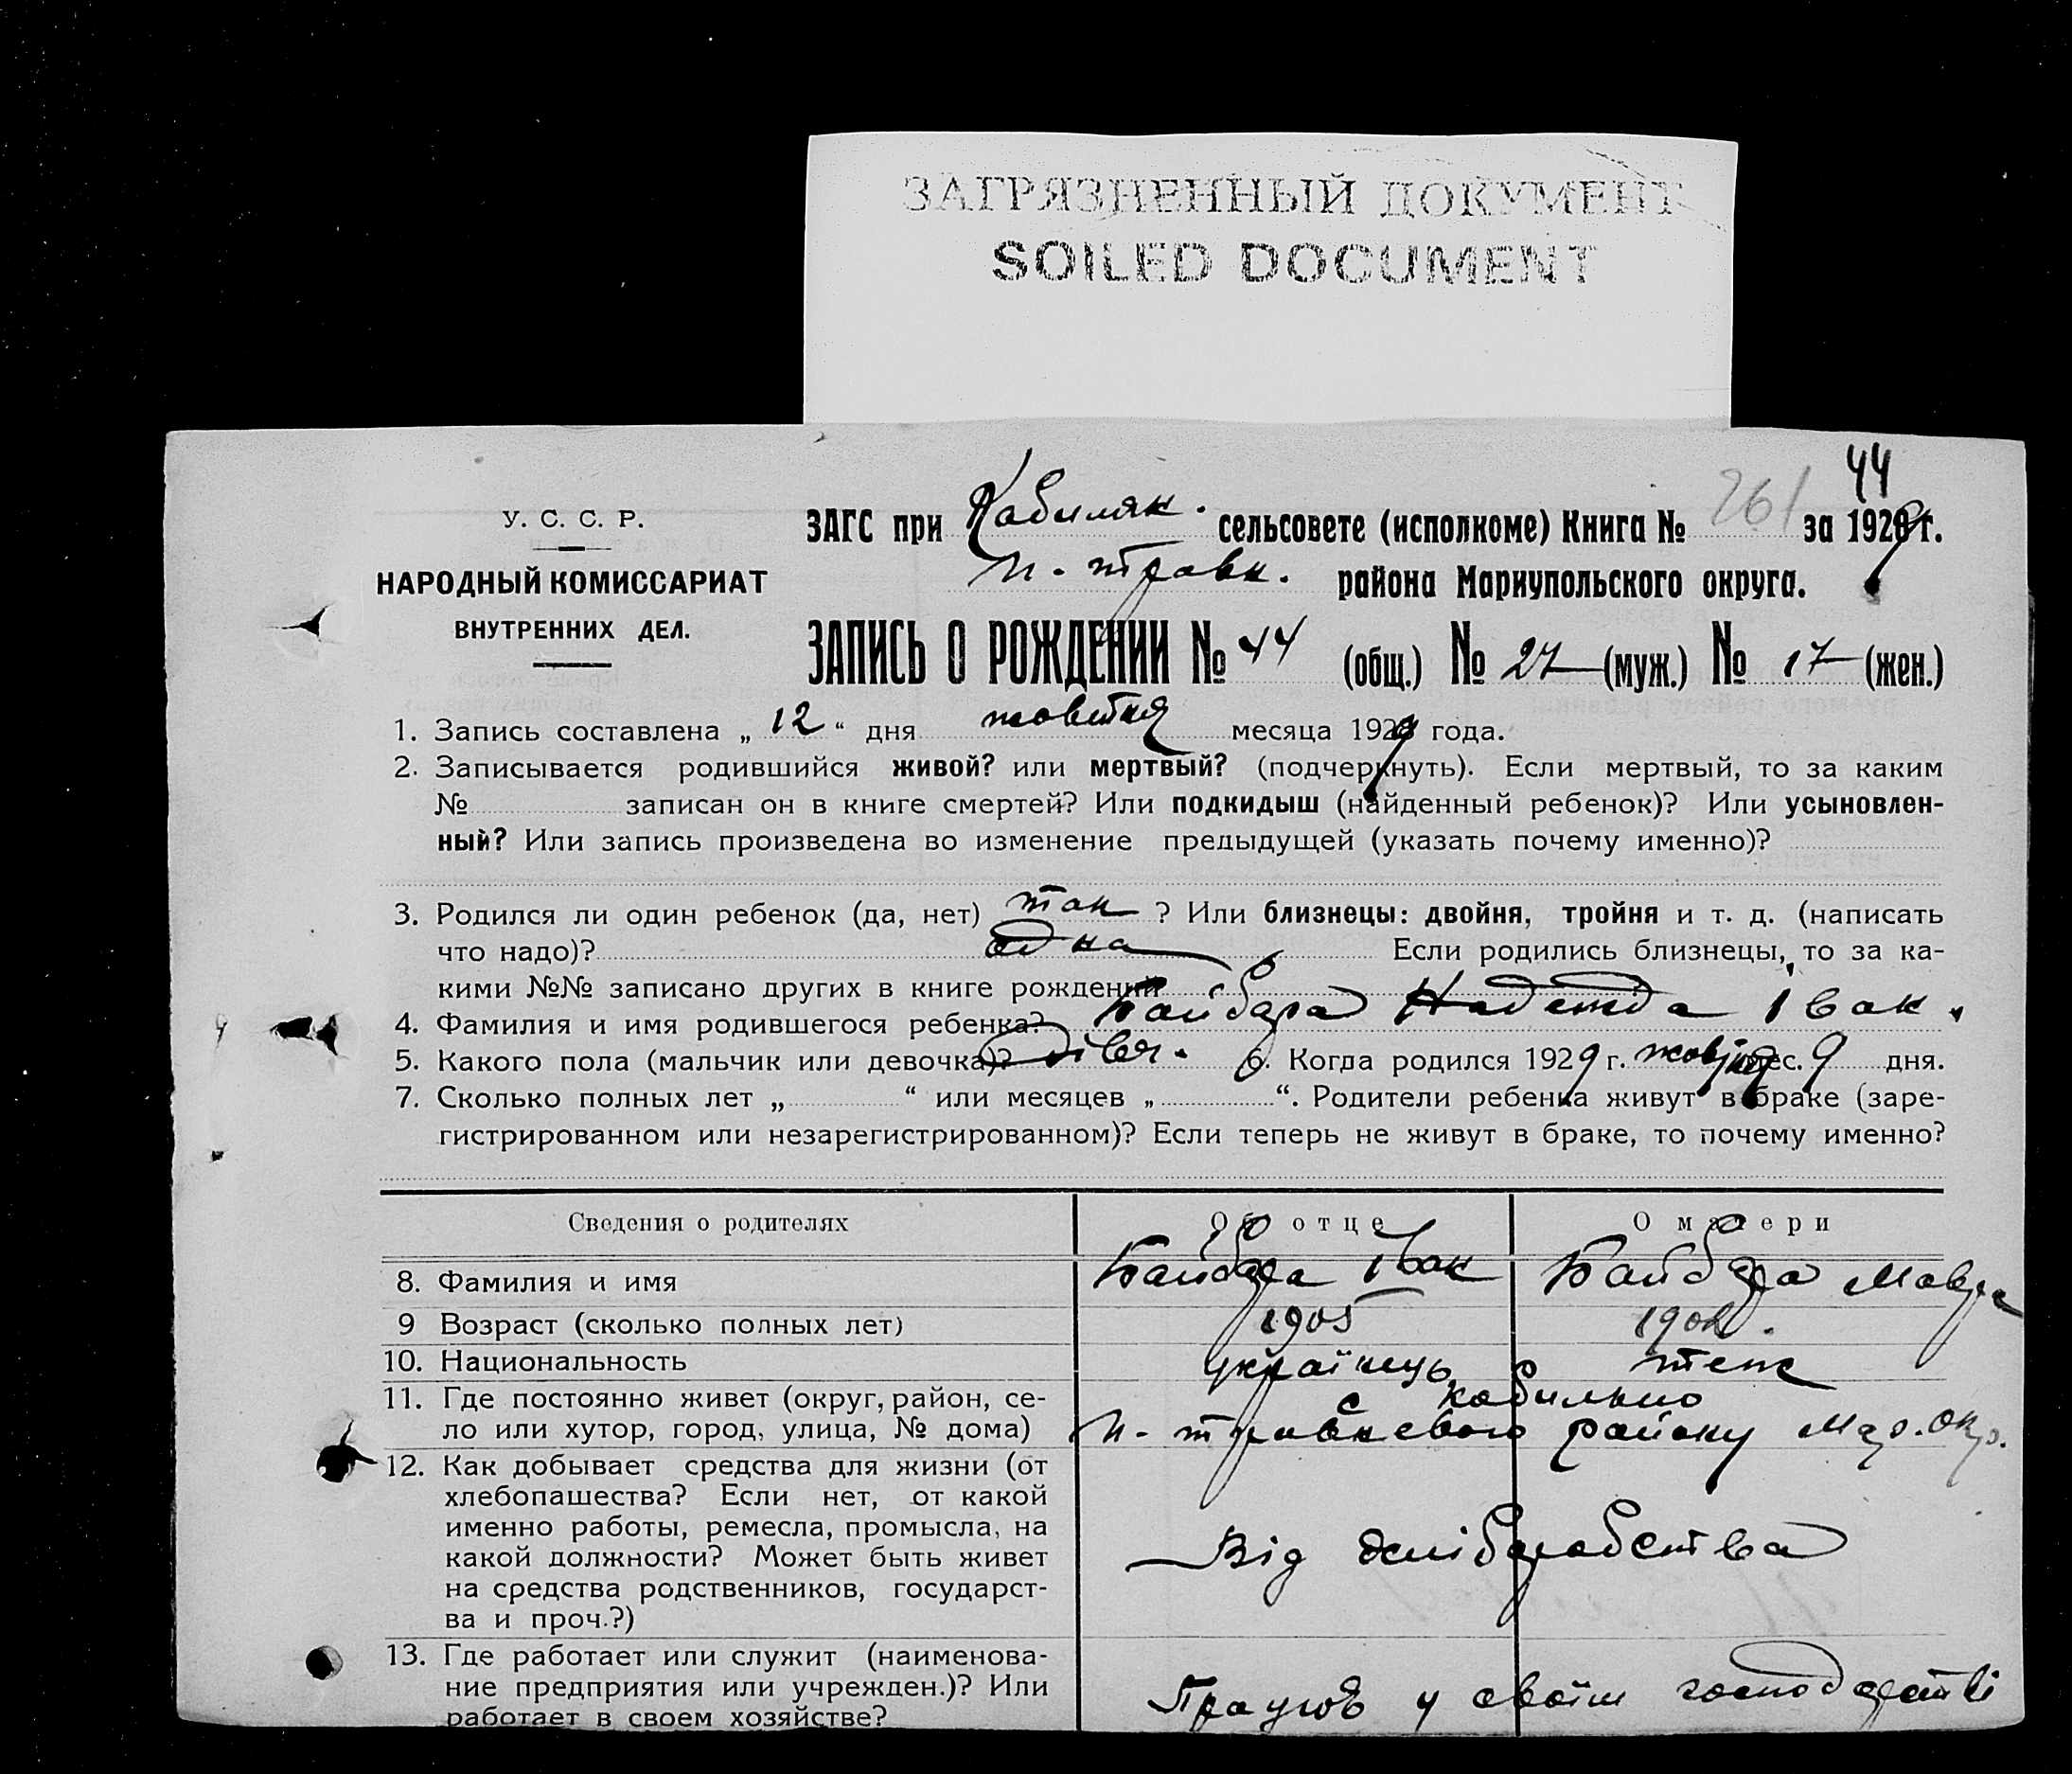 ЗАГРЯЗНЕННЫЙ ДОКУМЕНТ
SOILED DOCUMENT
44
У. С. С. Р.
НАРОДНЫЙ КОМИССАРИАТ
ВНУТРЕННИХ ДЕЛ.
ЗАГС при Кабиляк. сельсовете (исполкоме) Книга № 261 за 1929 г.
п. травн. района Мариупольского округа.
ЗАПИСЬ О РОЖДЕНИИ № 44 (общ.) № 27 (муж.) № 17 (жен.)
1. Запись составлена „ 12 “ дня жовтня месяца 1929 года.
2. Записывается родившийся живой? или мертвый? (подчеркнуть). Если мертвый, то за каким
№ записан он в книге смертей? Или подкидыш (найденный ребенок)? Или усыновлен-
ный? Или запись произведена во изменение предыдущей (указать почему именно)?
3. Родился ли один ребенок (да, нет) так ? Или близнецы: двойня, тройня и т. д. (написать
что надо)? одна Если родились близнецы, то за ка-
кими №№ записано других в книге рождений
4. Фамилия и имя родившегося ребенка? Байбара Надежда Івак.
5. Какого пола (мальчик или девочка)? дівч. 6. Когда родился 1929 г. жовтня мес. 9 дня.
7. Сколько полных лет „ “ или месяцев „ “. Родители ребенка живут в браке (заре-
гистрированном или незарегистрированном)? Если теперь не живут в браке, то почему именно?
Сведения о родителях Об отце О матери
8. Фамилия и имя Байбара Івак Байбара Мавра
9 Возраст (сколько полных лет) 1905
10. Национальность українець теж
11. Где постоянно живет (округ, район, се-
ло или хутор, город, улица, № дома)
с Кабильно
п. травневого району Мар. окр.
12. Как добывает средства для жизни (от
хлебопашества? Если нет, от какой
именно работы, ремесла, промысла, на
какой должности? Может быть живет
на средства родственников, государст-
ва и проч.?)
Від хліборобства
13. Где работает или служит (наименова-
ние предприятия или учрежден.)? Или
работает в своем хозяйстве?
Працює у своїм господарстві